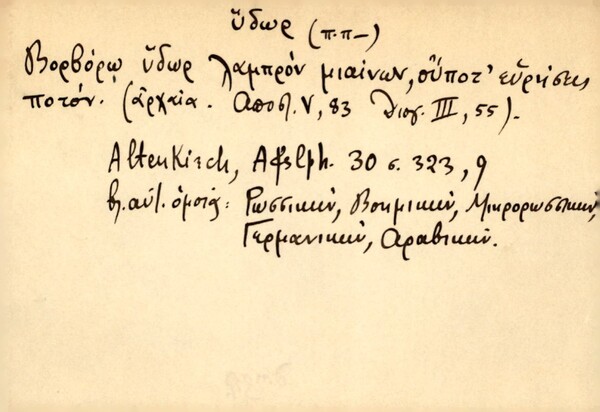 ὕδωρ (π.π-)
Βορβόρῳ ὕδωρ λαμπρόν μιαίνων, οὔποτ' εὑρήσεις
ποτόν. (ἀρχαία. Αποστ. V, 83 Διογ. III, 55).
Altenkirch, Afslph. 30 σ. 323, 9
βλ. αὐτ. ὁμοια: Ρωσσικήν, Βοημικήν, Μικρορωσσικήν,
Γερμανικήν, Αραβικήν.